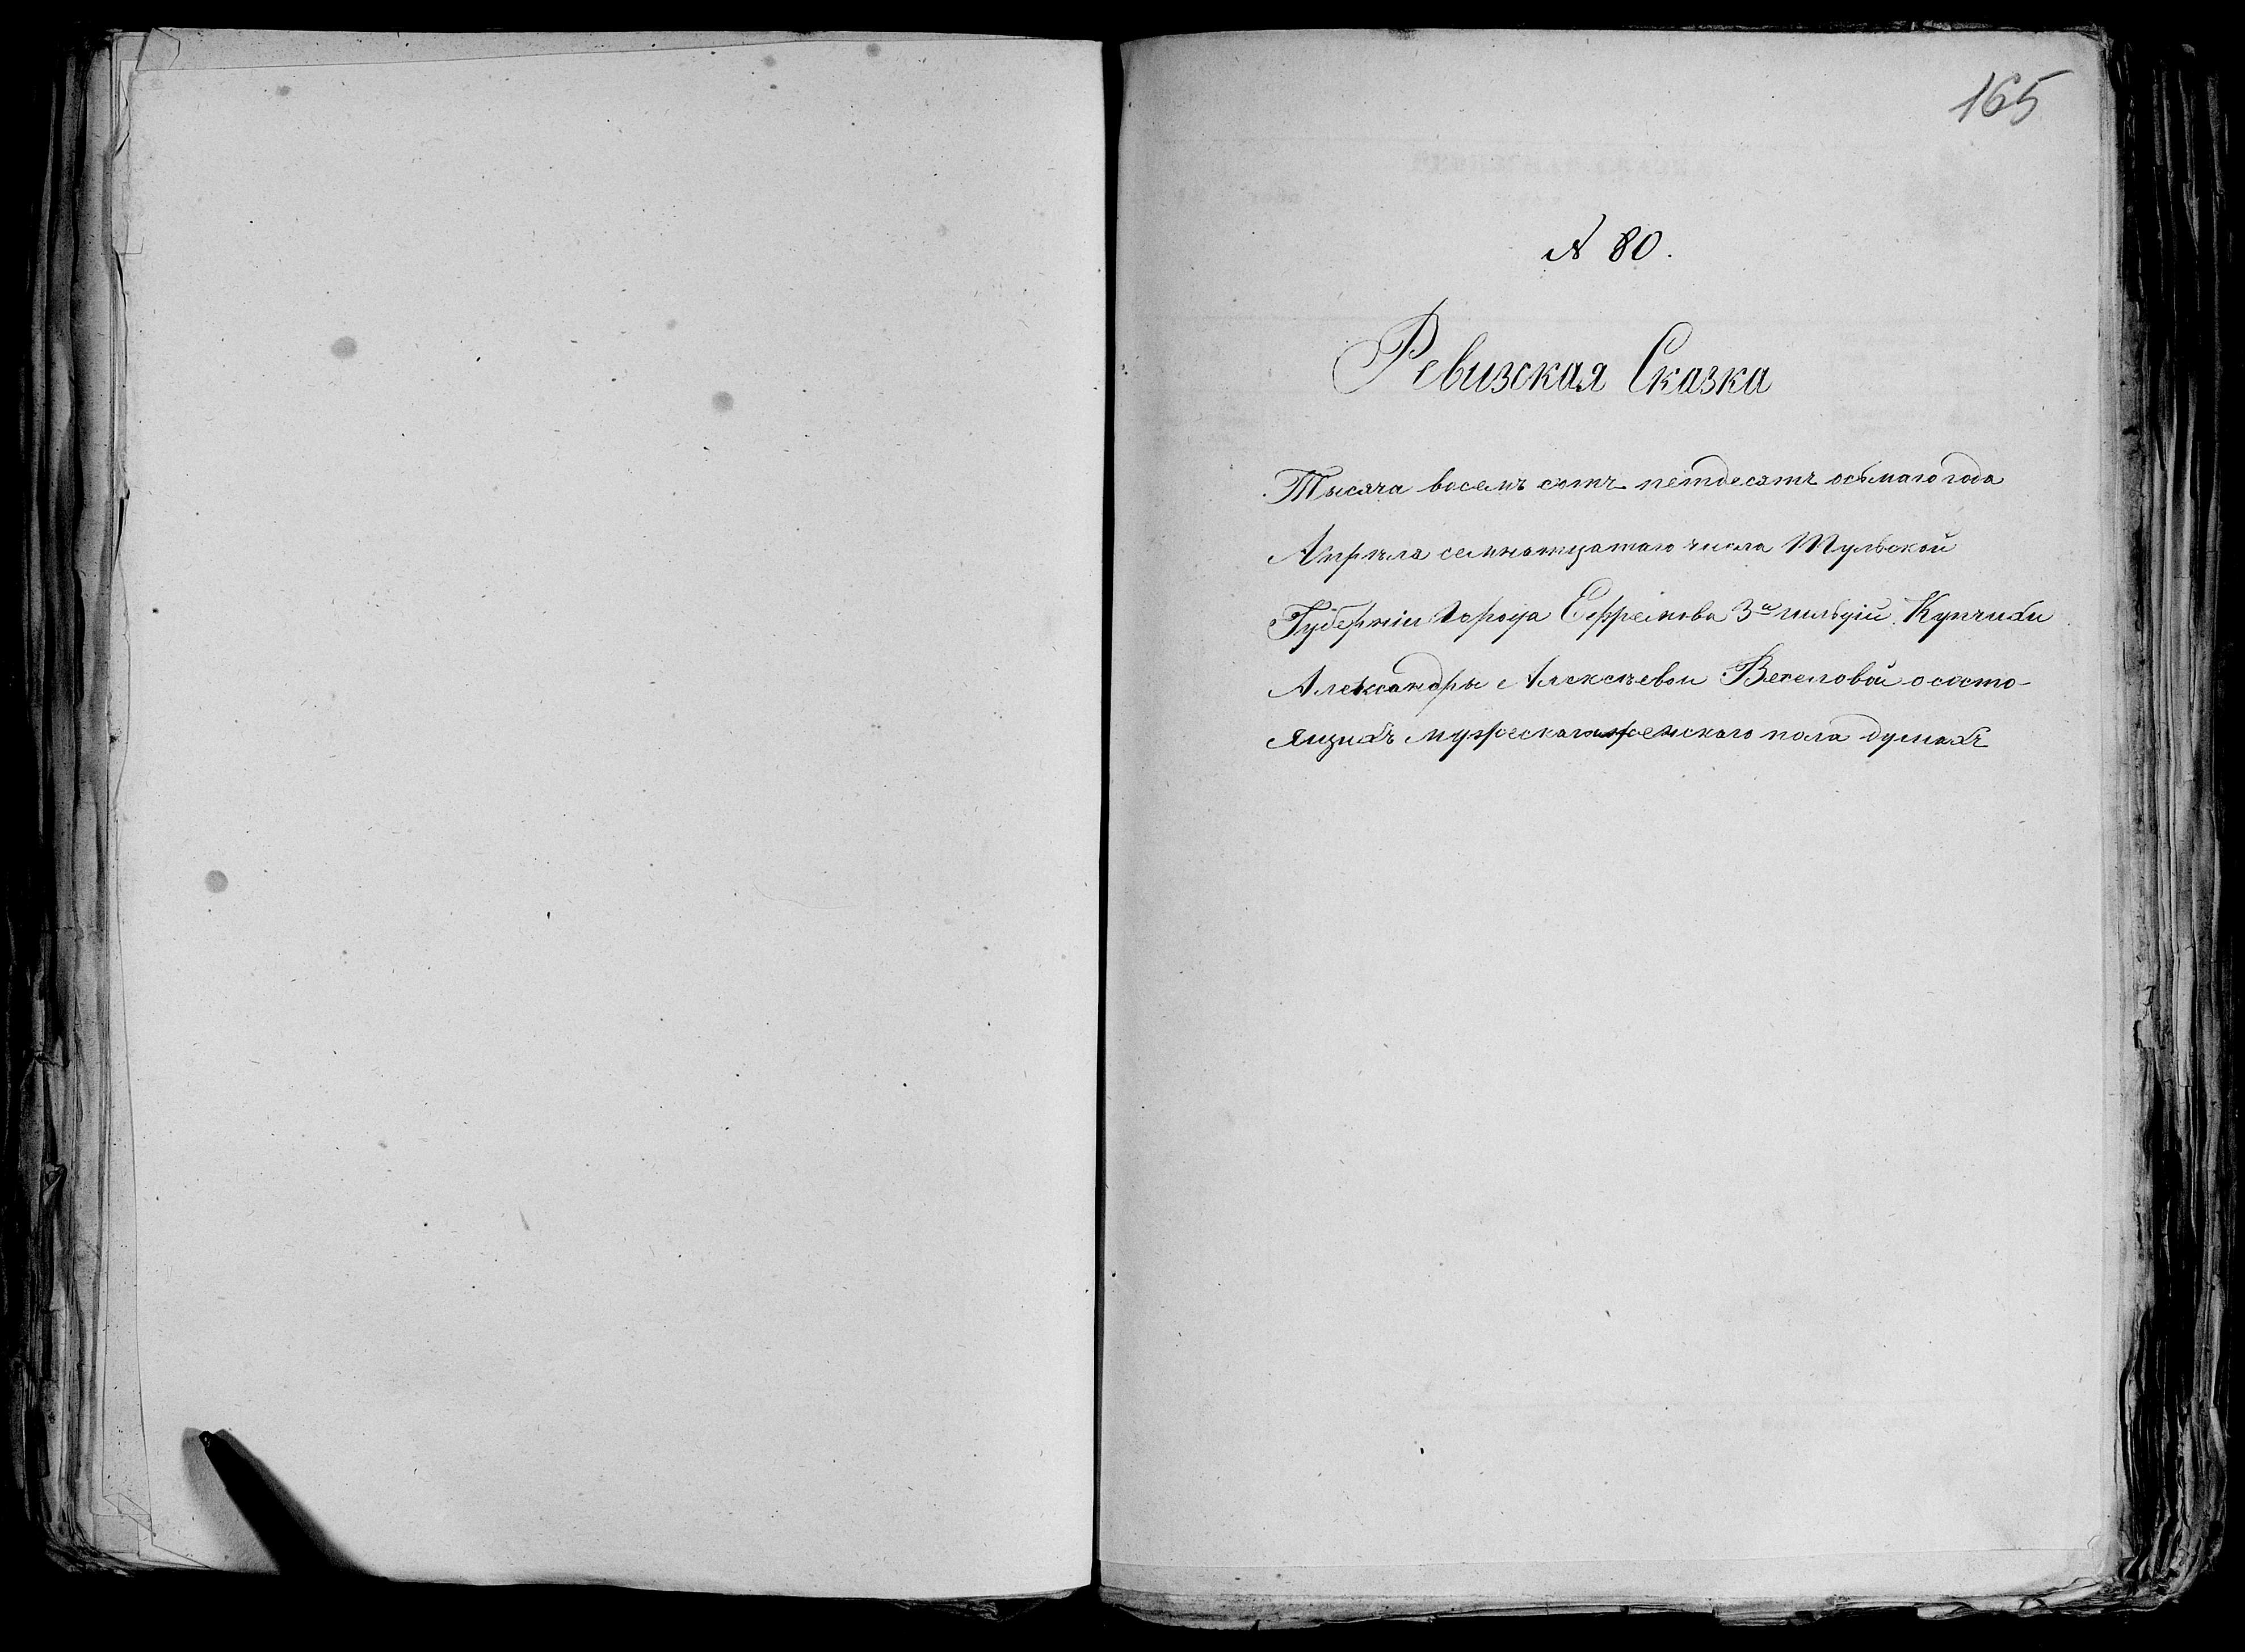 165
№ 80.
Ревизская Сказка
Тысяча восемъ сотъ петдесятъ осьмаго года
Апрѣля семнатцатаго числа Тульской
Губерніи Города Ефремова 3й гильдіи Купчихи
Александры Алексѣевой Веселовой о состо-
ящихъ мужескаго и женскаго пола душахъ